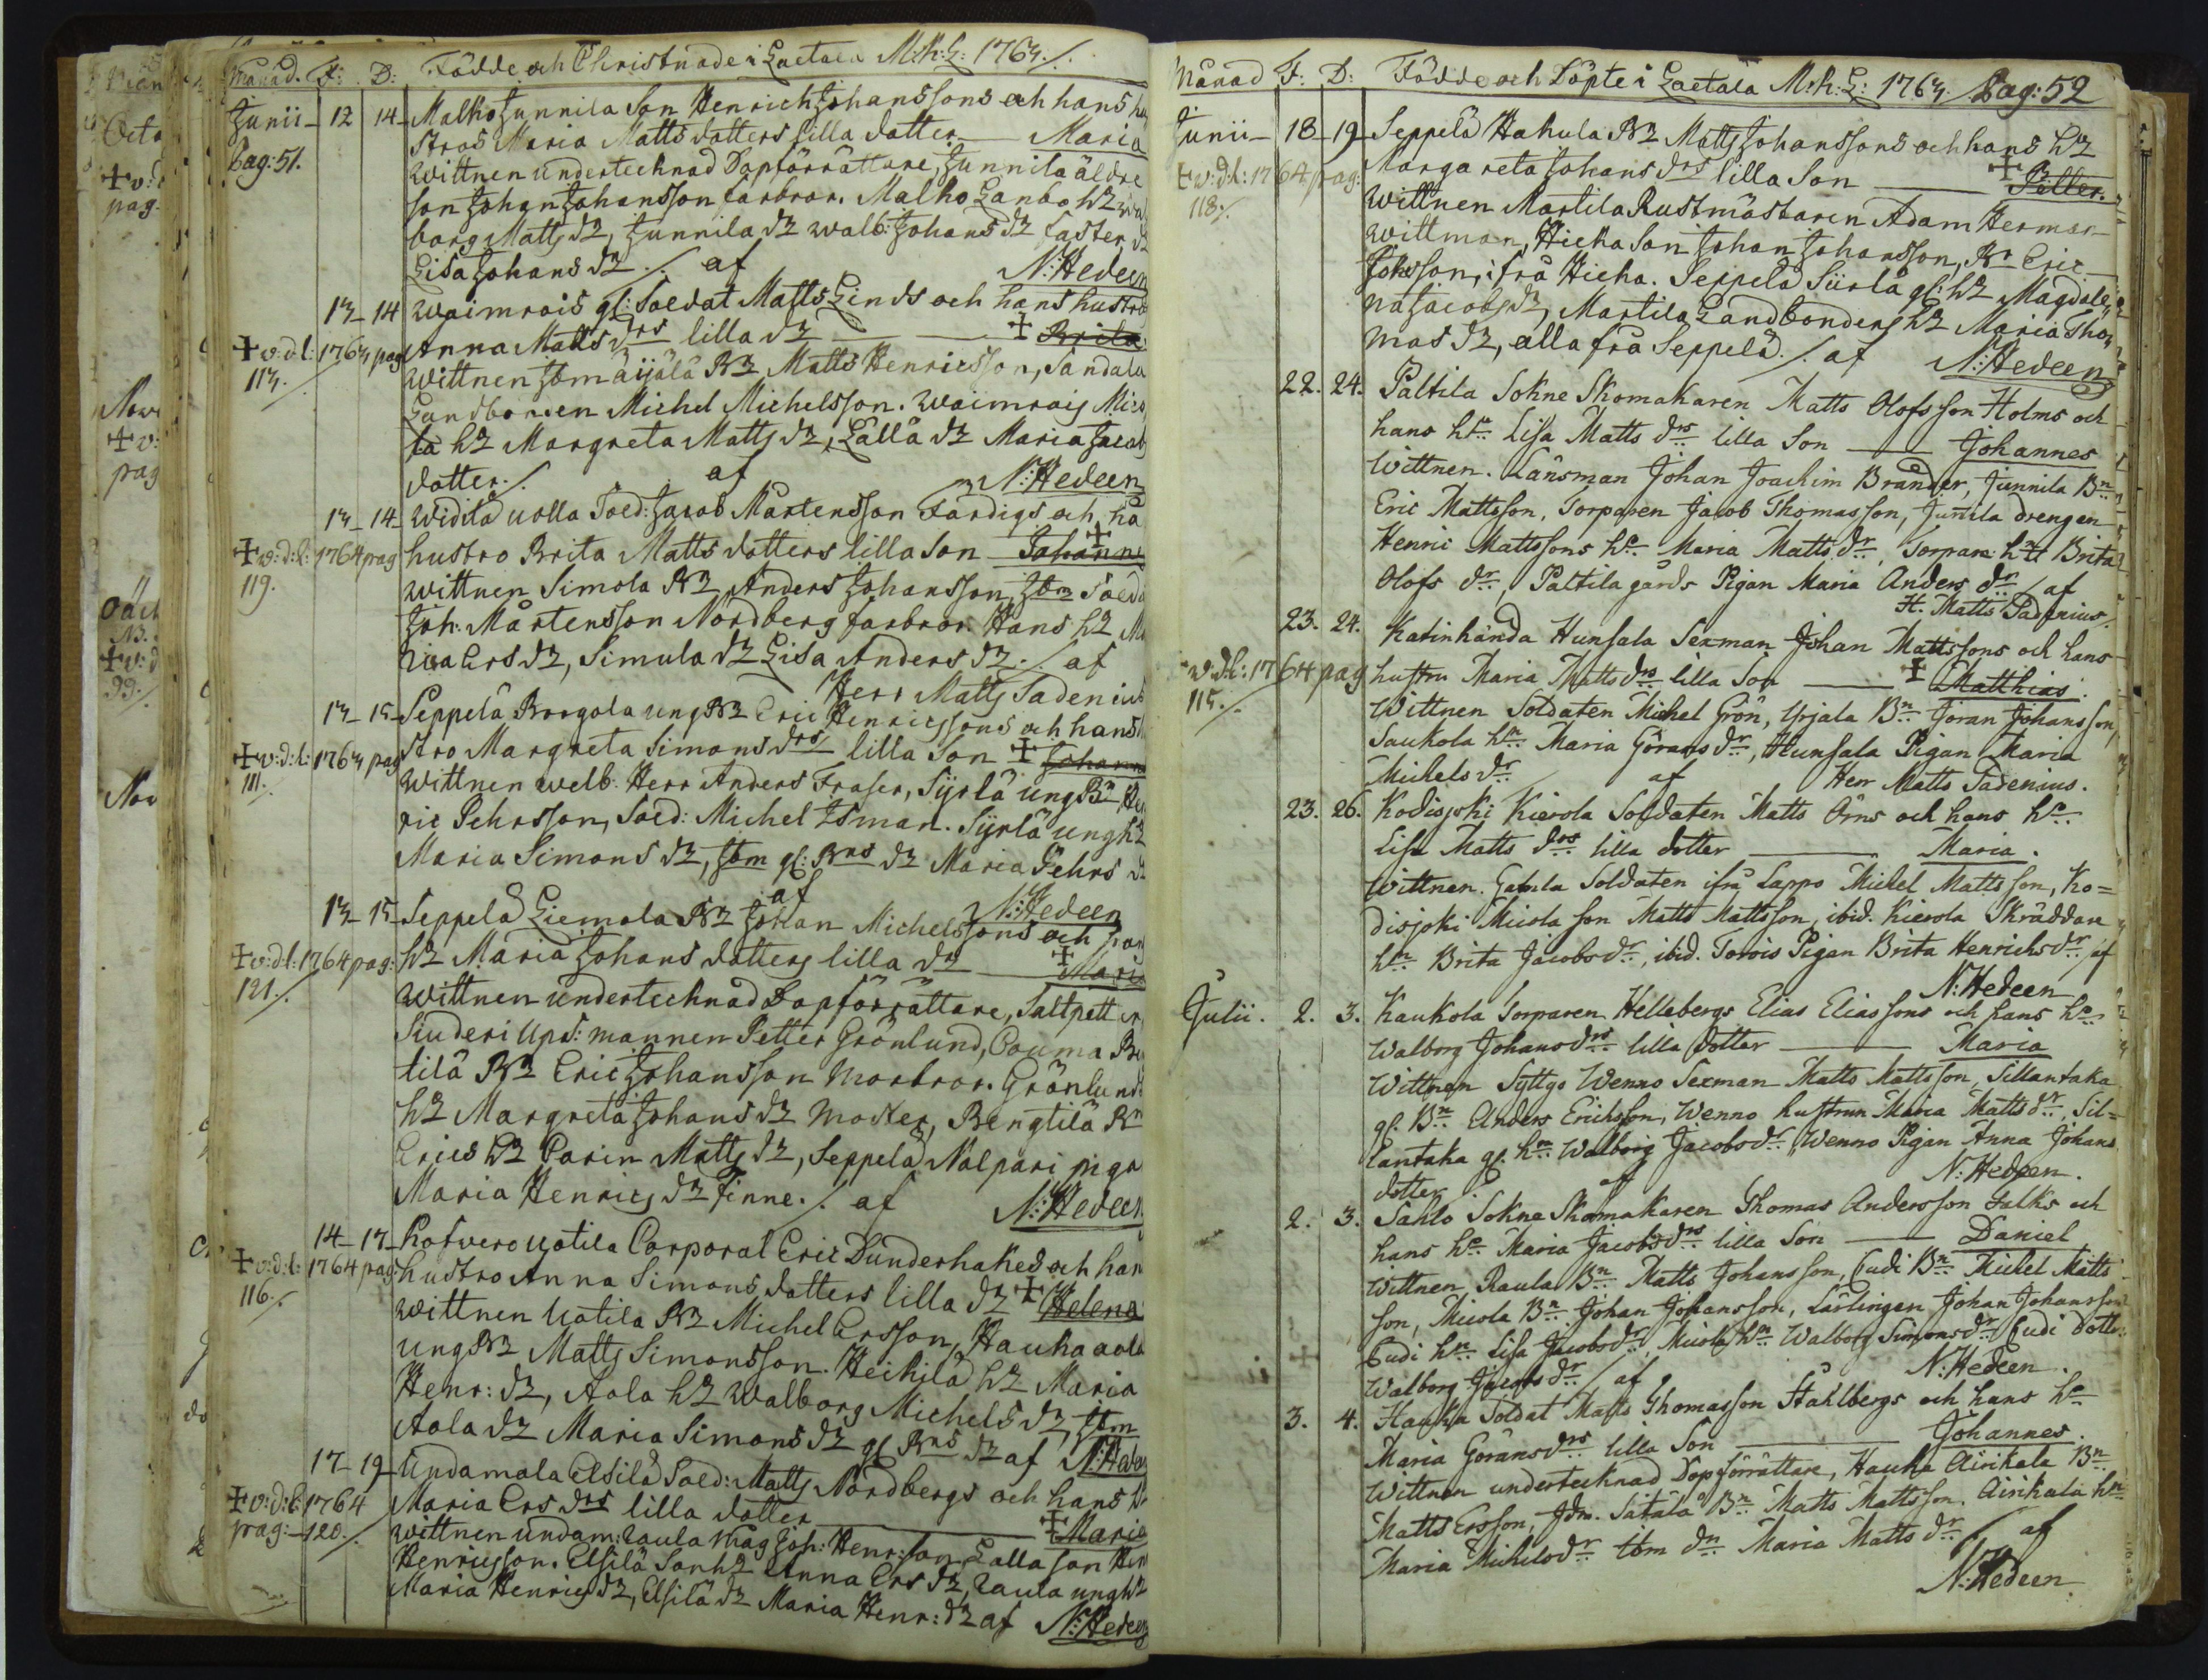 Månad. F: D: Födde och Christnade i Laetala M:K:L: 1764./.
Junii 12 14 Malho Junnila Son Henrich Johanssons och hans hu
Pag: 51. stros Maria Matts dotters lilla dotter Maria
Wittnen undertecknad Dopförrättare, Junnila äldre
son Johan Johansson farbror. Malho Lanbo hz Wal
borg Matts dz, Junnila dz Walb: Johans dz faster, dz
Lisa Johans dz ./. af N: Hedeen
13 14 Waimrois gl: Soldat Matts Linds och hans hustro
✝ v:d:l: 1764 pag Anna Matts drs lilla dz ✝ Brita
113. Wittnen Jbm äijälä Bz Matts Henricsson, Sandala
Landbonden Michel Michelsson. Waimrois
la hz Margreta Matts dz, Lällä dz Maria Jacobs
dotter./. af N: Hedeen
13 14 Widila uolla Sold: Jacob Mårtensson Färdigs och ha
✝ v:d:l: 1764 pag hustro Brita Matts dotters lilla Son ✝ Johanne
119. Wittnen Simola Bz Anders Johansson, Jbm Solda
Joh: Mårtensson Nordberg farbror. Hans hz Ma
ria Ers dz, Simula dz Lisa Anders dz ./. af
Herr Matts Sadenius
13 15 Seppelä Borgola ung Bz Eric Henricssons och hans
✝ v:d:l: 1764 pag stro Margreta Simons drs lilla Son ✝ Johann
111. Wittnen welb: Herr Anders Fraser, Syrlä ung Bn Hen
ric Pehrsson, Sold: Michel Isman. Syrlä ung hz
Maria Simons dz, Jbm gl: Bns dz Maria Pehrs d
af N: Hedeen
13 15 Seppelä Liemola Bz Johan Michelssons och hans
✝ v:d:l: 1764 pag: hz Maria Johans dotters lilla dz ✝ Maria
121./. Wittnen undertecknad Dopförrättare, Saltpetter
Siuderi Ups: mannen Petter Grönlund, Couma Be
tilä Bz Eric Johansson Morbror. Grönlunds
hz Margreta Johans dz Moster, Bengtilä Bn
Erics hz Carin Matts dz, Seppelä Nalpari piga
Maria Henrics dz Finne ./. af N: Hedeen
14 17 Kofvero Uotila Corporal Eric Dunderhakes och han
✝ v:d:l: 1764 pag: hustro Anna Simons dotters lilla dz ✝ Helena
116./. Wittnen Uotila Bz Michel Ersson, Hauha aola
ung Bz Matts Simonsson. Heikilä hz Maria
Henr: dz, Aola hz Walborg Michels dz, Jbm
Aola dz Maria Simons dz gl Bns dz af N: Heden
17 19 Undamala Elsilä Sold: Matts Nordbergs och hans h
✝ v:d:l: 1764 Maria Ers drs lilla dotter ✝ Maria
pag: 120./. Wittnen undam: Raula Måg Joh: Henr: son, Lalla son Hen
Henricsson. Elsilä Son hz Anna Ers dz, Raula ung hz
Maria Henrics dz, Elsilä dz Maria Henr: dz af N: Hedeen
Månad F: D: Födde och Döpte i Laetala M:K:L: 1764. Pag: 52
Junii 18 19 Seppelä Hakula Bz Matts Johanssons och hans hz
✝ v:d:l: 1764 pag: Margareta Johans drs lilla Son ✝ Petter.
118./. Wittnen Martila Rustmästaren Adam Herman
Wittman, Hieha Son Johan Johansson, Bn Eric
Johsson, ifrå Hieha. Seppelä Siirlä gl: hz Magdale
na Jacobs dz, Martila Landbonders hz Maria Tho
mas dz, alla frå Seppelä ./. af N: Hedeen
22. 24. Paltila Sokne Skomakaren Matts Olofsson Holms och
hans hst Lisa Matts drs lilla Son Johannes
Wittnen. Länsman Johan Joachim Brander, Junnila Bn
Eric Mattsson, Torparen Jacob Thomasson, Junila drengen
Henric Mattssons hs Maria Matts dr, Torpare hst Brita
Olofs dr, Paltila gårds Pigan Maria Anders dr /. af
H. Matts Sadenius.
23. 24. Katinhända Hunsala Sexman Johan Mattssons och hans
v:d:l: 1764 pag hustru Maria Matts drs lilla Son ✝ Matthias.
115./. Wittnen Soldaten Michel Grön, Urjala Bn Jöran Johansson,
Saukola hn Maria Görans dr, Hunsala Pigan Maria
Michels dr af Herr Matts Sadenius.
23. 26. Kodisjoki Kierola Soldaten Matts Örns och hans hs
Lisa Matts drs lilla dotter Maria.
Wittnen. Soldaten ifrå Lappo Mickel Mattsson, Ko=
disjoki Miicola Son Matts Mattsson, ibid. Kierola Skräddare
hn Brita Jacobs dr, ibid. Torois Pigan Brita Henrichs dr /. af
N: Hedeen
Julii. 2. 3. Kaukola Torparen Hellebergs Elias Eliassons och hans hs
Walborg Johans drs lilla dotter Maria
Wittnen Syttyo Wenno Sexman Matts Mattsson, Sillantaka
gl. Bn Anders Erichsson, Wenno hustrun Maria Matts dr, Sil=
lantaka gl. hn Walborg Jacobs dr, Wenno Pigan Anna Johans
dotter. af N: Hedeen.
2. 3. Sahlo Sokne Skomakaren Thomas Andersson Falks och
hans hs Maria Jacobs drs lilla Son Daniel
Wittnen Raula Bn Matts Johansson, Eudi Bn Mickel Matts
son, Miicola Bn Johan Johansson, Lärlingen Johan Johansson
Eudi hn Lisa Jacobs dr, Miicola hn Walborg Simons dr, Eudi dotter
Walborg Jacobs dr /. af N: Hedeen.
3. 4. Hauha Soldat Matts Thomasson Ståhlbergs och hans hs
Maria Görans drs lilla Son Johannes.
Wittnen undertecknad Dopförrättare, Hauha Äirikala Bn
Matts Ersson, Jdm. Satala Bn Matts Mattsson. Äirikala hn
Maria Michels dr ibm dn Maria Matts dr /. af
N: Hedeen